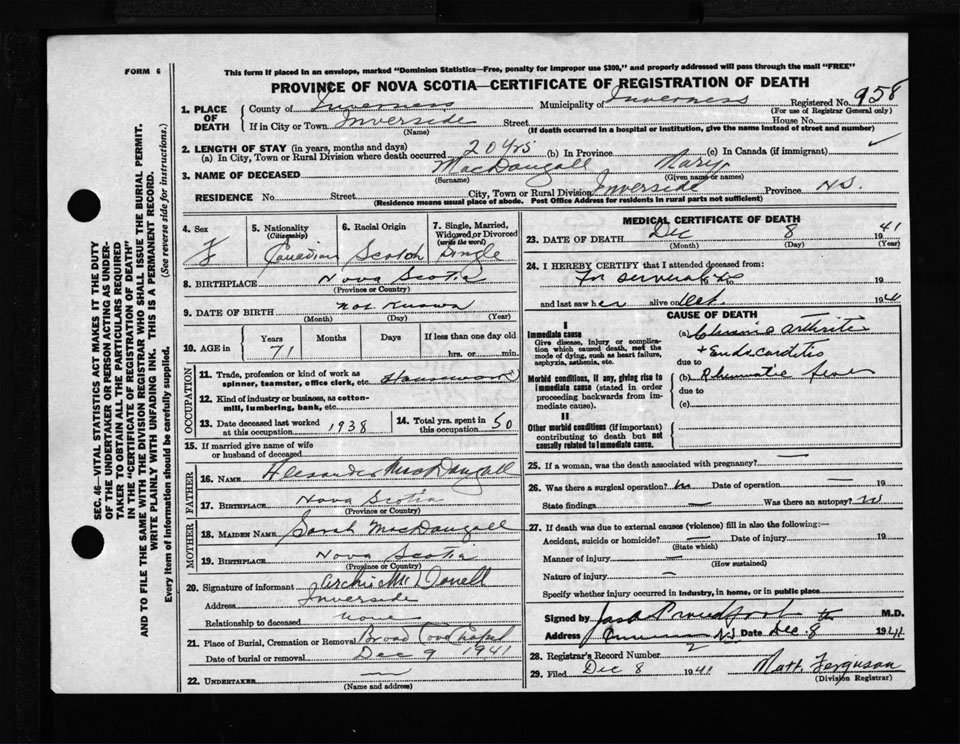 FORM 6
This form if placed in an envelope, marked "Dominion Statistics—Free, penalty for improper use $300," and properly addressed will pass through the mail "FREE"
PROVINCE OF NOVA SCOTIA—CERTIFICATE OF REGISTRATION OF DEATH
1. PLACE OF DEATH
County of Inverness Municipality of Inverness Registered No. 958
(For use of Registrar General only)
If in City or Town Inverside Street House No.
(Name) (If death occurred in a hospital or institution, give the name instead of street and number)
2. LENGTH OF STAY (in years, months and days)
(a) In City, Town or Rural Division where death occurred 20 yrs (b) In Province (c) In Canada (if immigrant)
3. NAME OF DECEASED MacDougall Mary
(Surname) (Given name or names)
RESIDENCE No. Street City, Town or Rural Division Inverside Province N.S.
(Residence means usual place of abode. Post Office Address for residents in rural parts not sufficient)
4. Sex F
5. Nationality (Citizenship) Canadian
6. Racial Origin Scotch
7. Single, Married, Widowed or Divorced (write the word) Single
8. BIRTHPLACE Nova Scotia
(Province or Country)
9. DATE OF BIRTH not known
(Month) (Day) (Year)
10. AGE in Years 71 Months Days If less than one day old hrs. or min.
OCCUPATION
11. Trade, profession or kind of work as spinner, teamster, office clerk, etc. Housework
12. Kind of industry or business, as cotton-mill, lumbering, bank, etc.
13. Date deceased last worked at this occupation 1938
14. Total yrs. spent in this occupation 50
15. If married give name of wife or husband of deceased
FATHER
16. NAME Alexander MacDougall
17. BIRTHPLACE Nova Scotia
(Province or Country)
MOTHER
18. MAIDEN NAME Sarah MacDougall
19. BIRTHPLACE Nova Scotia
(Province or Country)
20. Signature of informant Archie McDonell
Address Inverside
Relationship to deceased none
21. Place of Burial, Cremation or Removal Broad Cove Chapel
Date of burial or removal Dec 9 1941
22. UNDERTAKER —
(Name and address)
MEDICAL CERTIFICATE OF DEATH
23. DATE OF DEATH Dec 8 1941
(Month) (Day) (Year)
24. I HEREBY CERTIFY that I attended deceased from:
For several to 19
and last saw her alive on Oct. 1941
CAUSE OF DEATH
I
Immediate cause
Give disease, injury or complication which caused death, not the mode of dying, such as heart failure, asphyxia, asthenia, etc.
(a) Chronic arthritis
+ Endocarditis
due to
Morbid conditions, if any, giving rise to immediate cause (stated in order proceeding backwards from immediate cause).
(b) Rheumatic fever
due to
(c)
II
Other morbid conditions (if important) contributing to death but not causally related to immediate cause.
25. If a woman, was the death associated with pregnancy? —
26. Was there a surgical operation? no Date of operation —
State findings — Was there an autopsy? no
27. If death was due to external causes (violence) fill in also the following:—
Accident, suicide or homicide? — Date of injury 19
(State which)
Manner of injury —
(How sustained)
Nature of injury —
Specify whether injury occurred in industry, in home, or in public place
Signed by Jas A Proudfoot M.D.
Address N.S. Date Dec. 8 1941
28. Registrar's Record Number 2
29. Filed Dec 8 1941 Matt. Ferguson
(Division Registrar)
SEC. 46—VITAL STATISTICS ACT MAKES IT THE DUTY
OF THE UNDERTAKER OR PERSON ACTING AS UNDER-
TAKER TO OBTAIN ALL THE PARTICULARS REQUIRED
IN THE "CERTIFICATE OF REGISTRATION OF DEATH"
AND TO FILE THE SAME WITH THE DIVISION REGISTRAR WHO SHALL ISSUE THE BURIAL PERMIT.
WRITE PLAINLY WITH UNFADING INK. THIS IS A PERMANENT RECORD.
Every item of information should be carefully supplied. (See reverse side for instructions.)